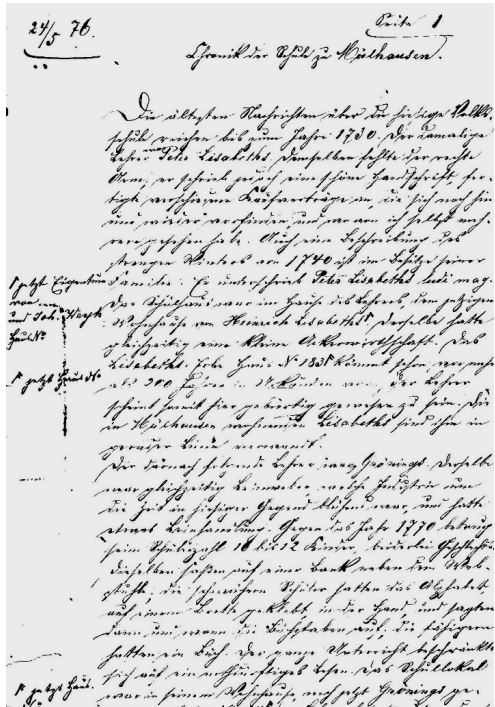 24/5 76.
Seite 1
Chronik der Schule zu Mülhausen.
Die ältesten Nachrichten über die hiesige Volks-
schule reichen bis zum Jahre 1730. Der damalige
Lehrer war Peter Lisabeths. Demselben fehlte der rechte
Arm; er schrieb jedoch eine schöne Handschrift, fer-
tigte verschiedene Kaufverträge an, die sich noch hin
und wieder vorfinden, und wovon ich selbst meh-
rere gesehen habe. Auch eine Beschreibung des
strengen Winters von 1740 ist im Besitze seiner
Familie. Er unterschrieb Peter Lisabeths ludi mag.
Das Schulhaus war im Hause des Lehrers, dem jetzigen
Wohnhause von Heinrich Lisabeths. Derselbe hatte
gleichzeitig eine kleine Ackerwirthschaft. Das
Lisabeths Erbe Haus No 183 kommt schon vor mehr
als 200 Jahren in Urkunden vor, der Lehrer
scheint somit hier gebürtig gewesen zu sein. Die
in Mülhausen wohnenden Lisabeths sind ihm in
gerader Linie verwandt.
Der darnach folgende Lehrer Grönings. Derselbe
war gleichzeitig Leinweber, welche Industrie um
die Zeit in hiesiger Gegend blühend war, und hatte
etwas Leinhandlung. Gegen das Jahr 1770 betrug
seine Schülerzahl 10 bis 12 Kinder, beiderlei Geschlechts.
Dieselben saßen auf einer Bank neben dem Web-
stuhle; die schwächern Schüler hatten das Alphabet
auf einem Brette geklebt in der Hand und sagten
dann und wann die Buchstaben auf. Die fähigern
hatten ein Buch. Der ganze Unterricht beschränkte
sich auf ein nothdürftiges Lesen. Das Schullokal
war in seinem Wohnhause, noch jetzt Grönings ge-
jetzt Eigentum
von
und Joh. Heyk
Haus No
jetzt Haus No
jetzt Haus